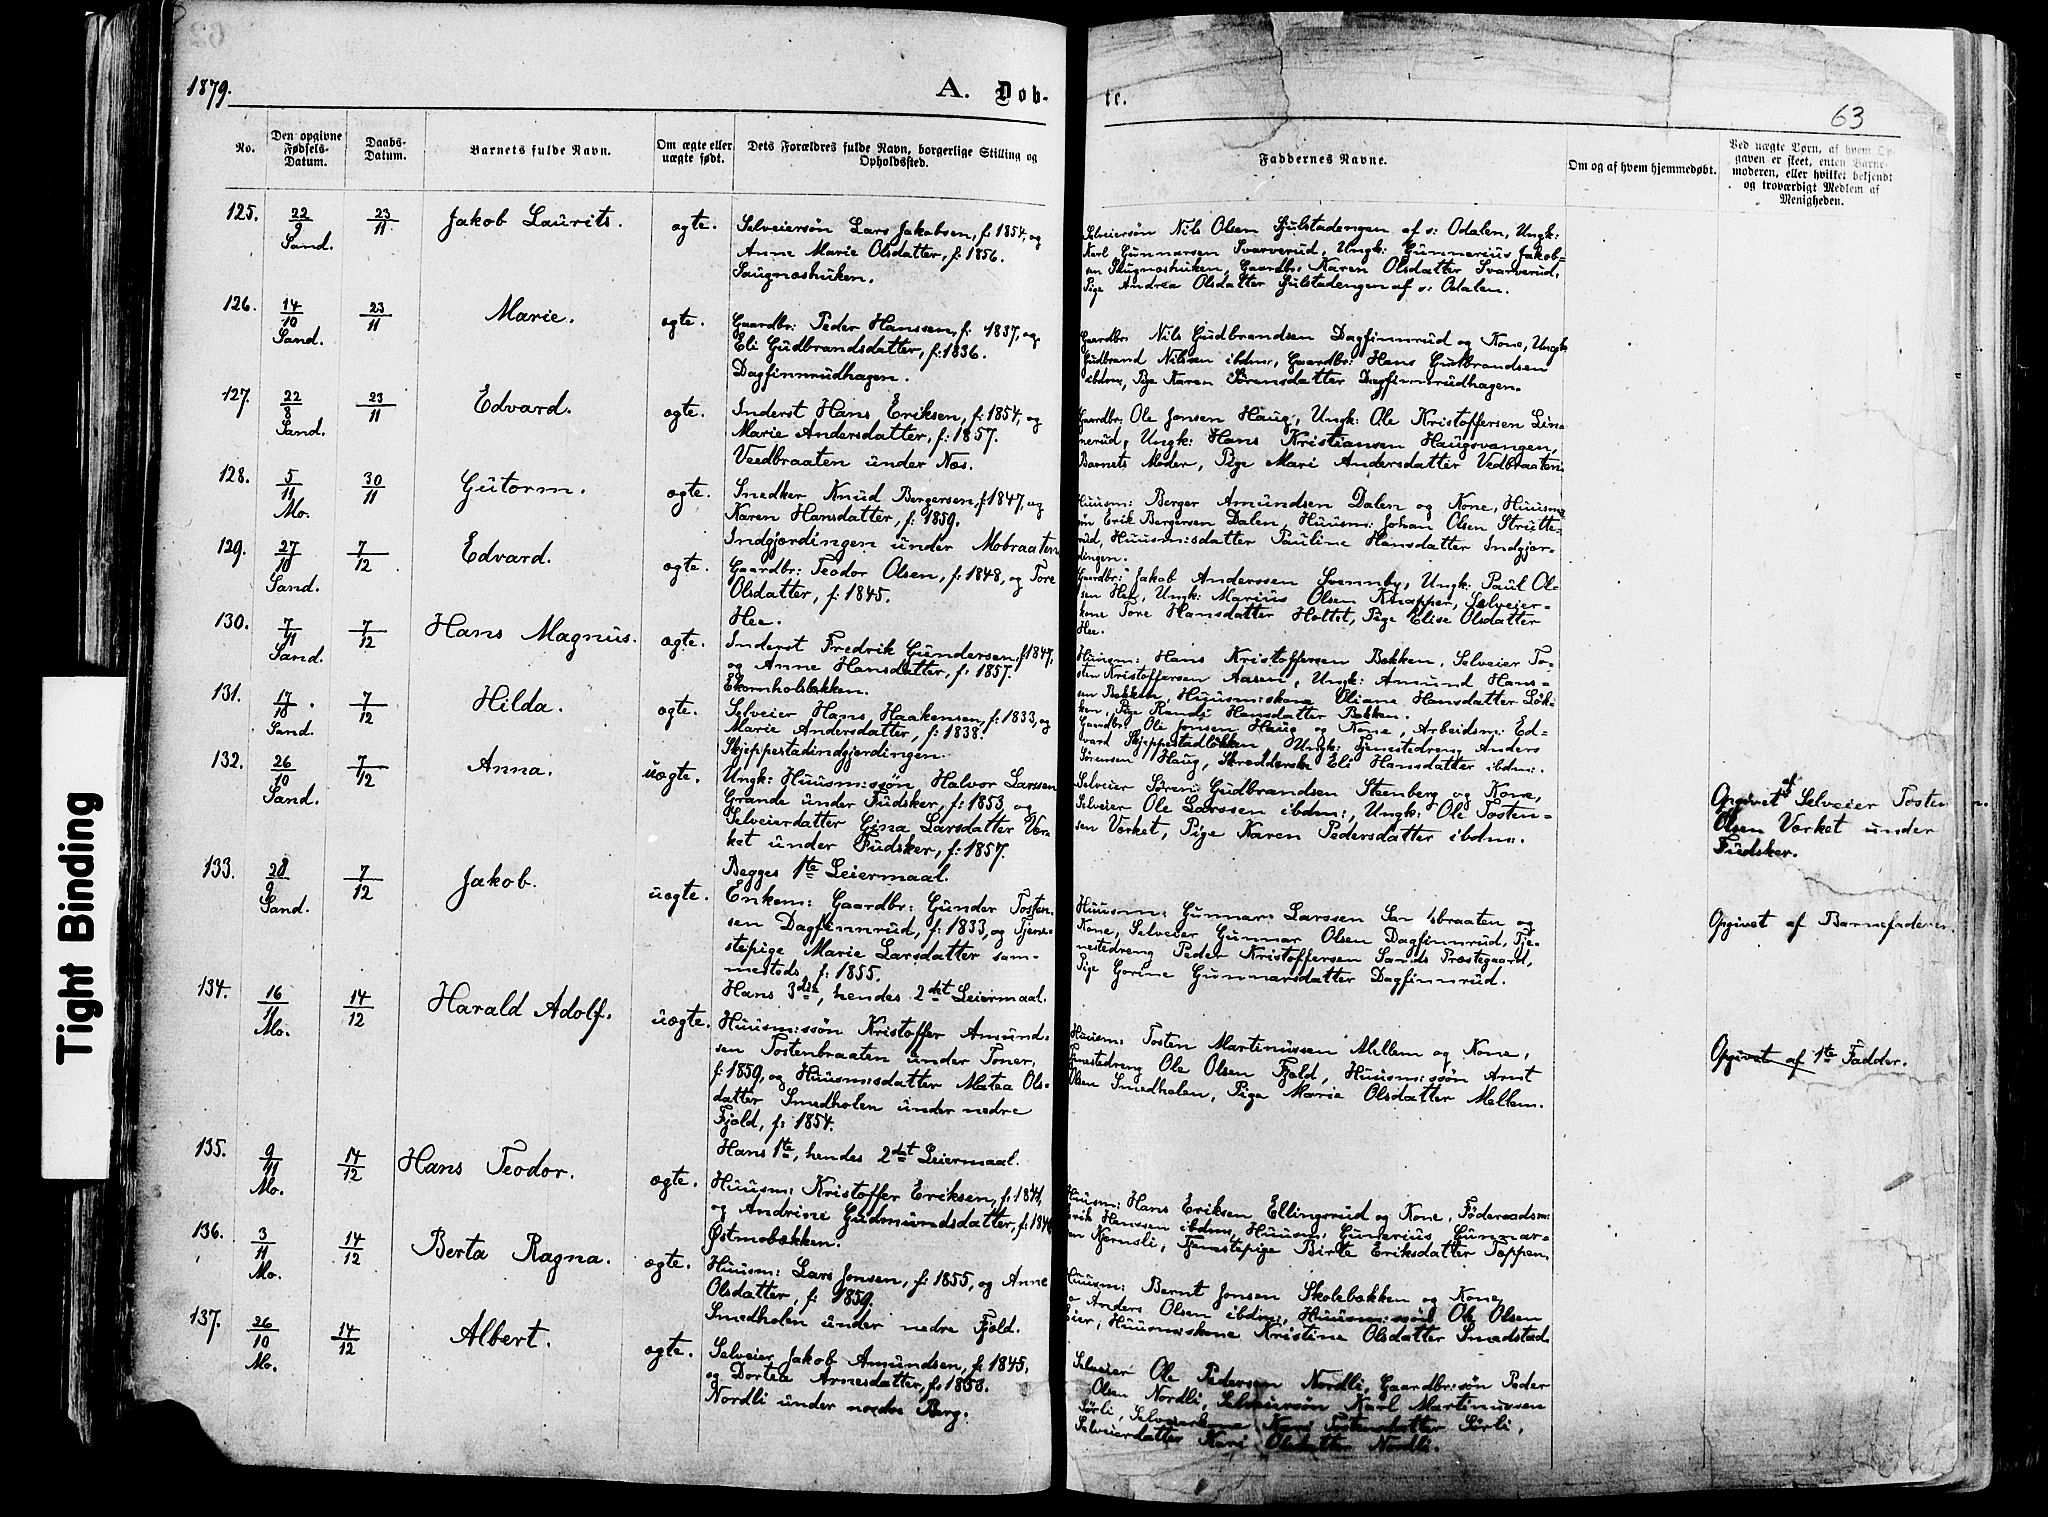 1879.
A. Døb-
te.
63
No.
Den opgivne Fødsels-Datum.
Daabs-Datum.
Barnets fulde Navn.
Om ægte eller uægte født.
Dets Forældres fulde Navn, borgerlige Stilling og Opholdssted.
Faddernes Navne.
Om og af hvem hjemmedøbt.
Ved uægte Børn, af hvem Op-
gaven er skeet, enten Barne-
moderen, eller hvilket bekjendt
og troværdigt Medlem af
Menigheden.
125. 22/9 Sand. 23/11 Jakob Laurits. ægte.
Selveiersøn Lars Jakobsen, f: 1854, og
Anne Marie Olsdatter, f: 1856.
Saugnæshuken.
Selveiersøn Nils Olsen Gulstadengen af s: Odalen, Ungk:
Karl Gunnarsen Svarverud, Ungk: Gunnerius Jakob-
sen Saugnæshuken, Gaardbr: Karen Olsdatter Svarverud,
Pige Andrea Olsdatter Gulstadengen af s: Odalen.
126. 14/10 Sand. 23/11 Marie. ægte.
Gaardbr: Peder Hanssen, f: 1837, og
Eli Gudbrandsdatter, f: 1836.
Dagfinnrudhagen.
Gaardbr: Nils Gudbrandsen Dagfinnrud og Kone, Ungk:
Gudbrand Nilssen ibdm:, Gaardbr: Hans Gudbrandsen
ibdm, Pige Karen Sørensdatter Dagfinnrudhagen.
127. 22/8 Sand. 23/11 Edvard. ægte.
Inderst Hans Eriksen, f: 1854, og
Marie Andersdatter, f: 1857.
Veedbraaten under Næs.
Gaardbr: Ole Jonsen Haug, Ungk: Ole Kristoffersen Lin-
nerud, Ungk: Hans Kristiansen Haugsvangen,
Barnets Moder, Pige Mari Andersdatter Vedbraaten.
128. 5/11 Mo. 30/11 Gutorm. ægte.
Snedker Knud Bergersen, f: 1847, og
Karen Hansdatter, f: 1859.
Indgjærdingen under Mobraaten
Huusm: Berger Amundsen Dalen og Kone, Huusm:
søn Erik Bergersen Dalen, Huusm: Johan Olsen Strutte-
rud, Huusm:sdatter Pauline Hansdatter Indgjær-
dingen.
129. 27/10 Sand. 7/12 Edvard. ægte.
Gaardbr: Teodor Olsen, f: 1848, og Tore
Olsdatter, f: 1845.
Hee.
Gaardbr: Jakob Anderssen Svennby, Ungk: Paul Ol-
sen Hee, Ungk: Marius Olsen Knapper, Selveier-
kone Tore Hansdatter Holtet, Pige Elise Olsdatter
Hee.
130. 7/11 Sand. 7/12 Hans Magnus. ægte.
Inderst Fredrik Gundersen, f: 1847,
og Anne Hansdatter, f: 1857.
Ekornholsbækken.
Huusm: Hans Kristoffersen Bækken, Selveier To-
sten Kristoffersen Aasen, Ungk: Amund Hans-
sen Bækken, Huusm:skone Oliane Hansdatter Løk-
ken, Pige Randi Hansdatter Bækken.
131. 17/10 Sand. 7/12 Hilda. ægte.
Selveier Hans Haakensen, f: 1833, og
Marie Andersdatter, f: 1838.
Skjeppestadindgjærdingen.
Gaardbr: Ole Jonsen Haug og Kone, Arbeidsm: Ed-
vard Skjeppestadløkken, Ungk: Tjenestedreng Anders
Sørensen Haug, Skrædderske Eli Hansdatter ibdm:.
132. 26/10 Sand. 7/12 Anna. uægte.
Ungk: Huusm:ssøn Halvor Larssen
Grande under Fudsker, f: 1853, og
Selveierdatter Gina Larsdatter Vær-
ket under Fudsker, f: 1857.
Begges 1te Leiermaal.
Selveier Søren Gudbrandsen Steenberg og Kone,
Selveier Ole Larssen ibdm:, Ungk: Ole Tosten-
sen Værket, Pige Karen Pedersdatter ibdm:.
Opgivet af Selveier Tosten
Olsen Værket under
Fudsker.
133. 28/9 Sand. 7/12 Jakob. uægte.
Enkem: Gaardbr: Gunder Tosten-
sen Dagfinnrud, f: 1833, og Tjene-
stepige Marie Larsdatter sam-
mesteds, f: 1855.
Hans 3die, hendes 2det Leiermaal.
Huusm: Gunnar Larssen braaten og
Kone, Selveier Gunnar Olsen Dagfinnrud, Tje-
nestedreng Peder Kristoffersen Sands Præstegaard,
Pige Gorine Gunnarsdatter Dagfinnrud.
Opgivet af Barnefaderen.
134. 16/11 Mo. 14/12 Harald Adolf. uægte.
Huusm:ssøn Kristoffer Amund-
sen Tostenbraaten under Toner,
f: 1859, og Huusm:sdatter Matea Ols-
datter Smedholen under nedre
Fjeld, f: 1854.
Hans 1te, hendes 2det Leiermaal.
Huusm: Tosten Martinussen Mellem og Kone,
Tjenestedreng Ole Olsen Fjeld, Huusm:ssøn Arnt
Olsen Smedholen, Pige Marie Olsdatter Mellem.
Opgivet af 1te Fadder.
135. 9/11 Mo. 14/12 Hans Teodor. ægte.
Huusm: Kristoffer Eriksen, f: 1841,
og Andrine Gudmundsdatter, f: 184
Østmobækken.
Huusm: Hans Eriksen Ellingsrud og Kone, Føderaadsm:
Erik Hanssen ibdm, Huusm: Gunerius Gunnar-
sen Kjernsli, Tjenstepige Birte Eriksdatter Toppen.
136. 3/11 Mo. 14/12 Berta Ragna. ægte.
Huusm: Lars Jonsen, f: 1855, og Anne
Olsdatter, f: 1859.
Smedholen under nedre Fjeld.
Huusm: Bernt Jonsen Skolebækken og Kone,
Anders Olsen ibdm:, Huusm:ssøn Ole Olsen
Huusm:skone Kristine Olsdatter Smedstad.
137. 26/10 Mo. 14/12 Albert. ægte.
Selveier Jakob Amundsen, f: 1845,
og Dortea Arnesdatter, f: 1853.
Nordli under nordre Berg.
Selveier Ole Pedersen Nordli, Gaardbr:søn Peder
Olsen Nordli, Selveiersøn Karl Martinussen
Sørli, Selveierkone Kari Tostensdatter Sørli,
Selveierdatter Kari Olsdatter Nordli.
Tight Binding